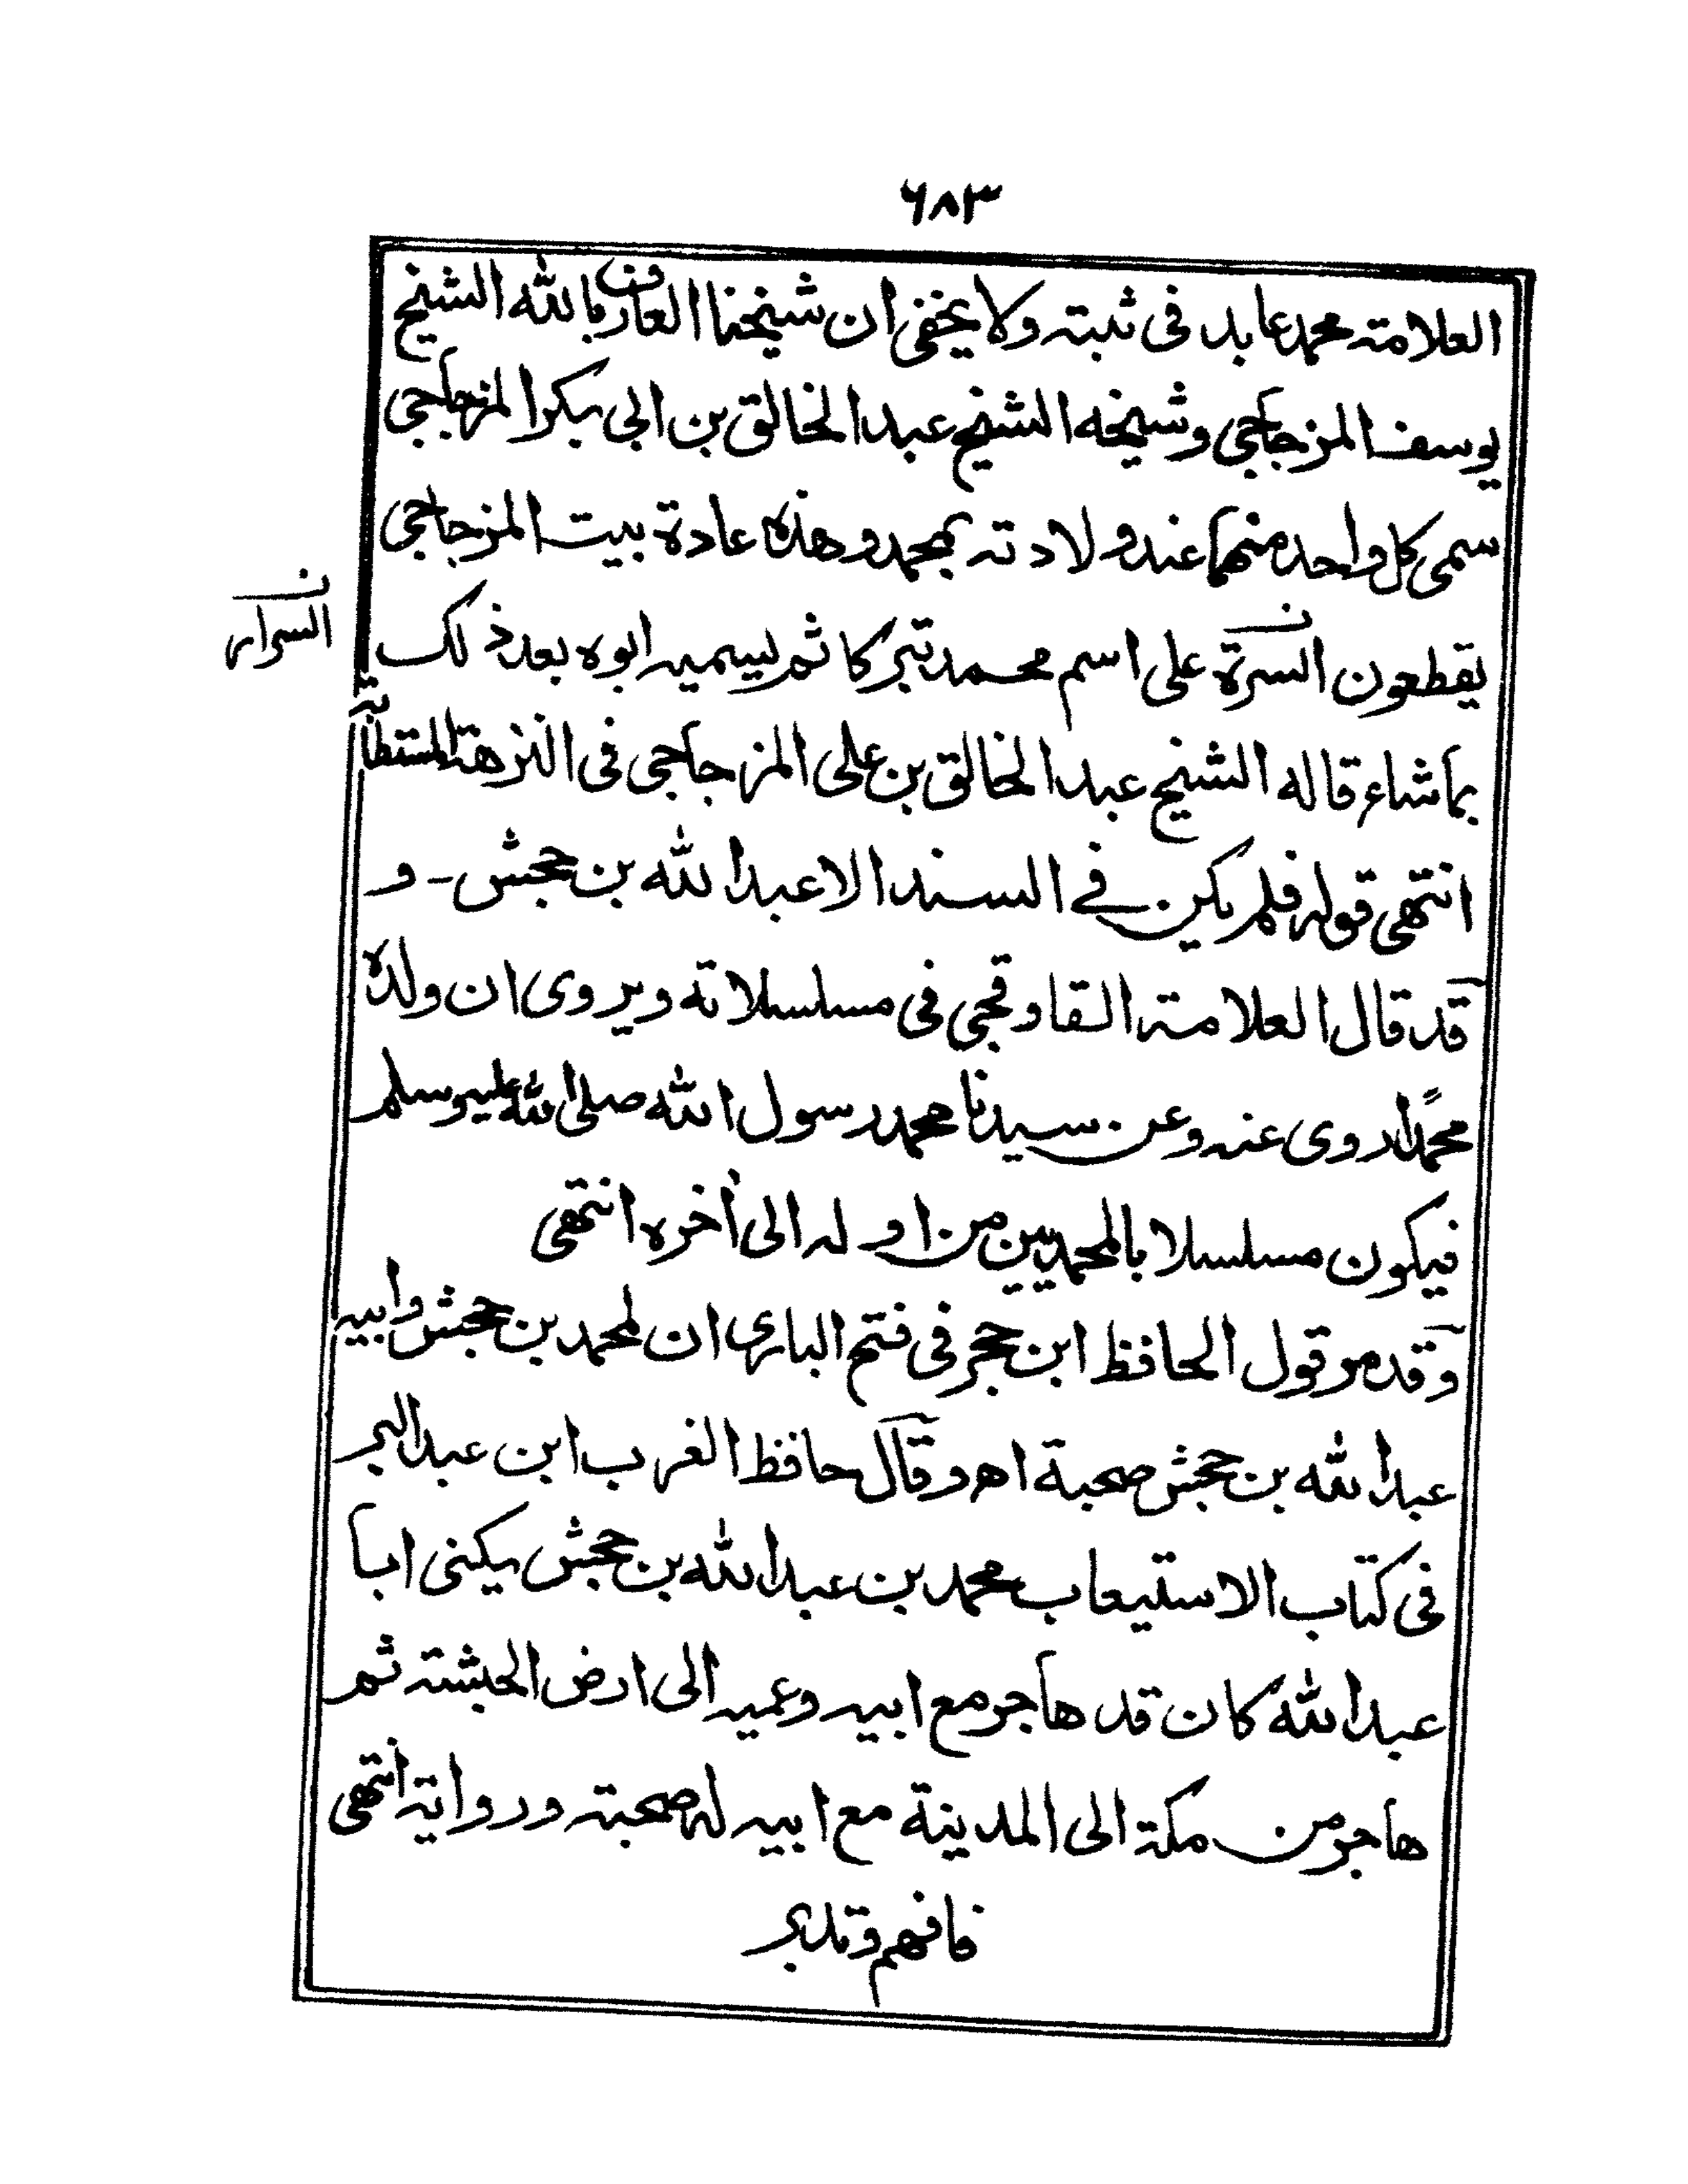 ٦٨٣
العلامة محمد عابد فى ثبته ولا يخفى ان شيخنا العارف بالله الشيخ
يوسف المزجاجى وشيخه الشيخ عبد الخالق بن ابى بكر المزجاجى
سمى كل واحد منهما عند ولادته بمحمد وهذه عادة بيت المزجاجى
يقطعون السرة على اسم محمد تبركا ثم يسميه ابوه بعد ذلك
ن
السرار
بما شاء قاله الشيخ عبد الخالق بن على المزجاجى فى النزهة المستطابة
انتهى قوله فلم يكن فى السند الا عبد الله بن جحش - و
قد قال العلامة القاوقجى فى مسلسلاته ويروى ان ولده
محمدًا روى عنه وعن سيدنا محمد رسول الله صلى الله عليه وسلم
فيكون مسلسلا بالمحمديين من اوله الى أخره انتهى
وقد مر قول الحافظ ابن حجر فى فتح البارى ان لمحمد بن جحش وابيه
عبد الله بن جحش صحبة اهـ وقال حافظ الغرب ابن عبد البر
فى كتاب الاستيعاب محمد بن عبد الله بن جحش يكنى ابا
عبد الله كان قد هاجر مع ابيه وعميه الى ارض الحبشة ثم
هاجر من مكة الى المدينة مع ابيه له صحبة ورواية انتهى
فافهم وتدبر